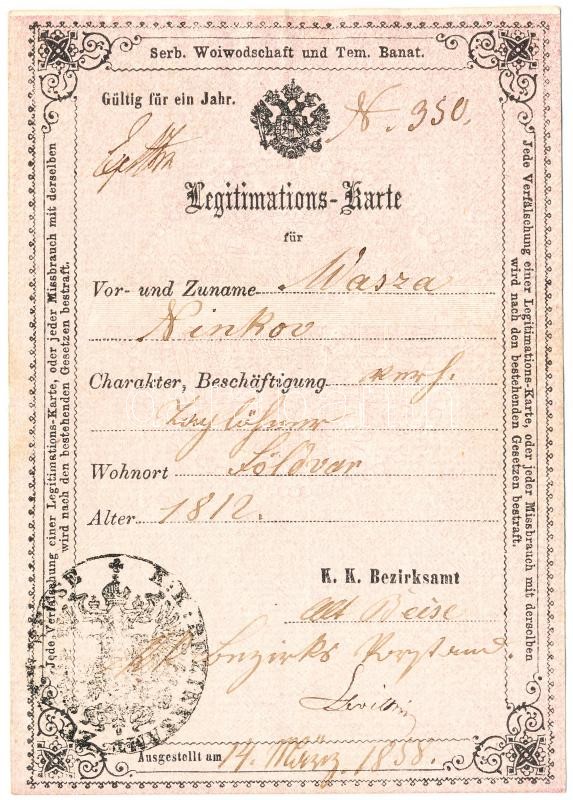 Serb. Woiwodschaft und Tem. Banat.
Gültig für ein Jahr.
N. 350.
Legitimations-Karte
für
Vor- und Zuname Wasza
Ninkov
Charakter, Beschäftigung verh.
Taglöhner
Wohnort Földvar
Alter 1812.
K. K. Bezirksamt
Alt Beise
Bezirks Vorstand.
Ausgestellt am 14. März 1858.
Jede Verfälschung einer Legitimations-Karte, oder jeder Missbrauch mit derselben
wird nach den bestehenden Gesetzen bestraft.
Jede Verfälschung einer Legitimations-Karte, oder jeder Missbrauch mit derselben
wird nach den bestehenden Gesetzen bestraft.
K.K. BEZIRKSAMT